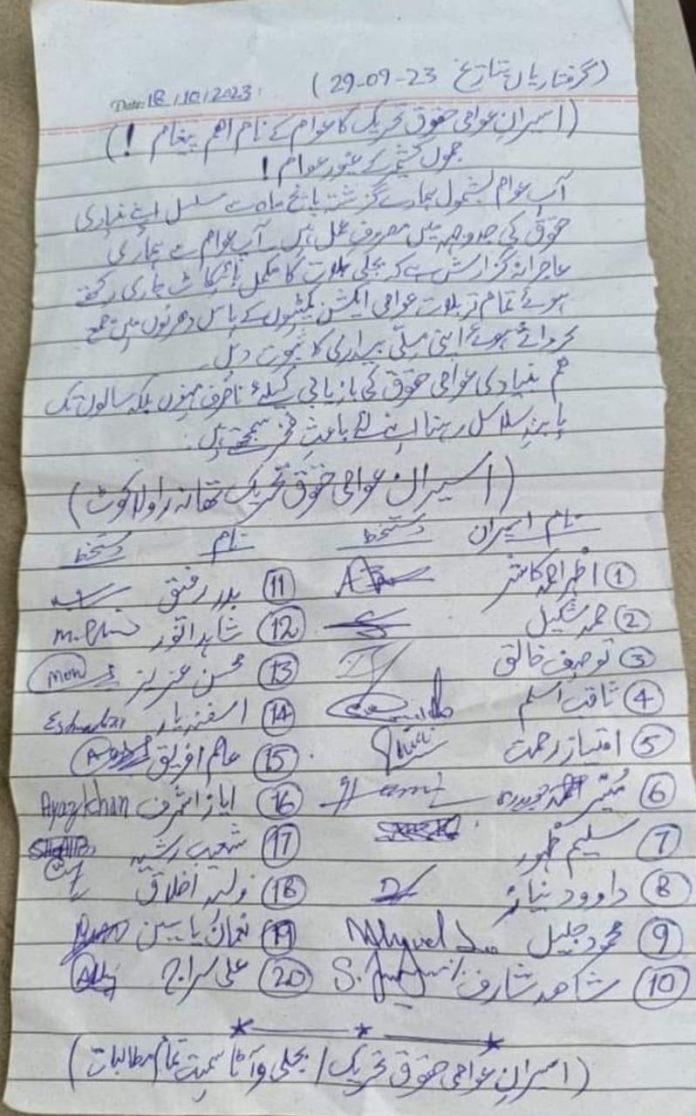 (گرفتاریاں بتاریخ 29-09-23)
Date: 18/10/2023
(اسیران عوامی حقوق تحریک کا عوام کے نام اہم پیغام !)
جموں کشمیر کے غیور عوام !
آپ عوام بشمول ہمارے گزشتہ پانچ ماہ سے مسلسل اپنے بنیادی
حقوق کی جدوجہد میں مصروف عمل ہیں۔ آپ عوام سے ہماری
عاجزانہ گزارش ہے کہ بجلی بلات کا مکمل بائیکاٹ جاری رکھتے
ہوئے تمام تر بلات عوامی ایکشن کمیٹیوں کے پاس دھرنوں میں جمع
کرواتے ہوئے اپنی ملی بیداری کا ثبوت دیں۔
ہم بنیادی عوامی حقوق کی بازیابی کیلئے ناصرف مہینوں بلکہ سالوں تک
پابند سلاسل رہنا اپنے لئے باعث فخر سمجھتے ہیں۔
(اسیران عوامی حقوق تحریک تھانہ راولاکوٹ)
نام اسیران دستخط نام دستخط
① اظہر احمد کاشر ⑪ بدر رفیق
② محمد شکیل ⑫ شاہد انور
③ توصیف خالق ⑬ محسن عزیز
④ ثاقب اسلم ⑭ اسفند یار
⑤ امتیاز رحمت ⑮ عالم آفریق
⑥ مبشر ⑯ ایاز اشرف Ayaz Khan
⑦ سلیم ظہور ⑰ شعیب رشید
⑧ داوود نیاز ⑱ ولید اخلاق
⑨ محمود جلیل ⑲ نعمان یاسین
⑩ شاھد شارف ⑳ علی سراج
(اسیران عوامی حقوق تحریک / بجلی و آٹا سمیت تمام مطالبات)